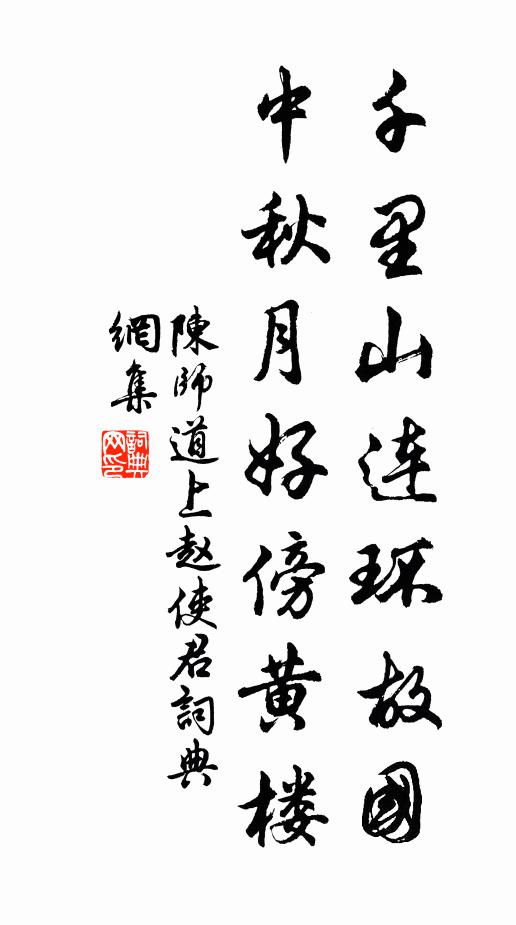 千里山连环故國
中秋月好傍黄楼
陳师道上赵使君詞典
網集
詞典
网印